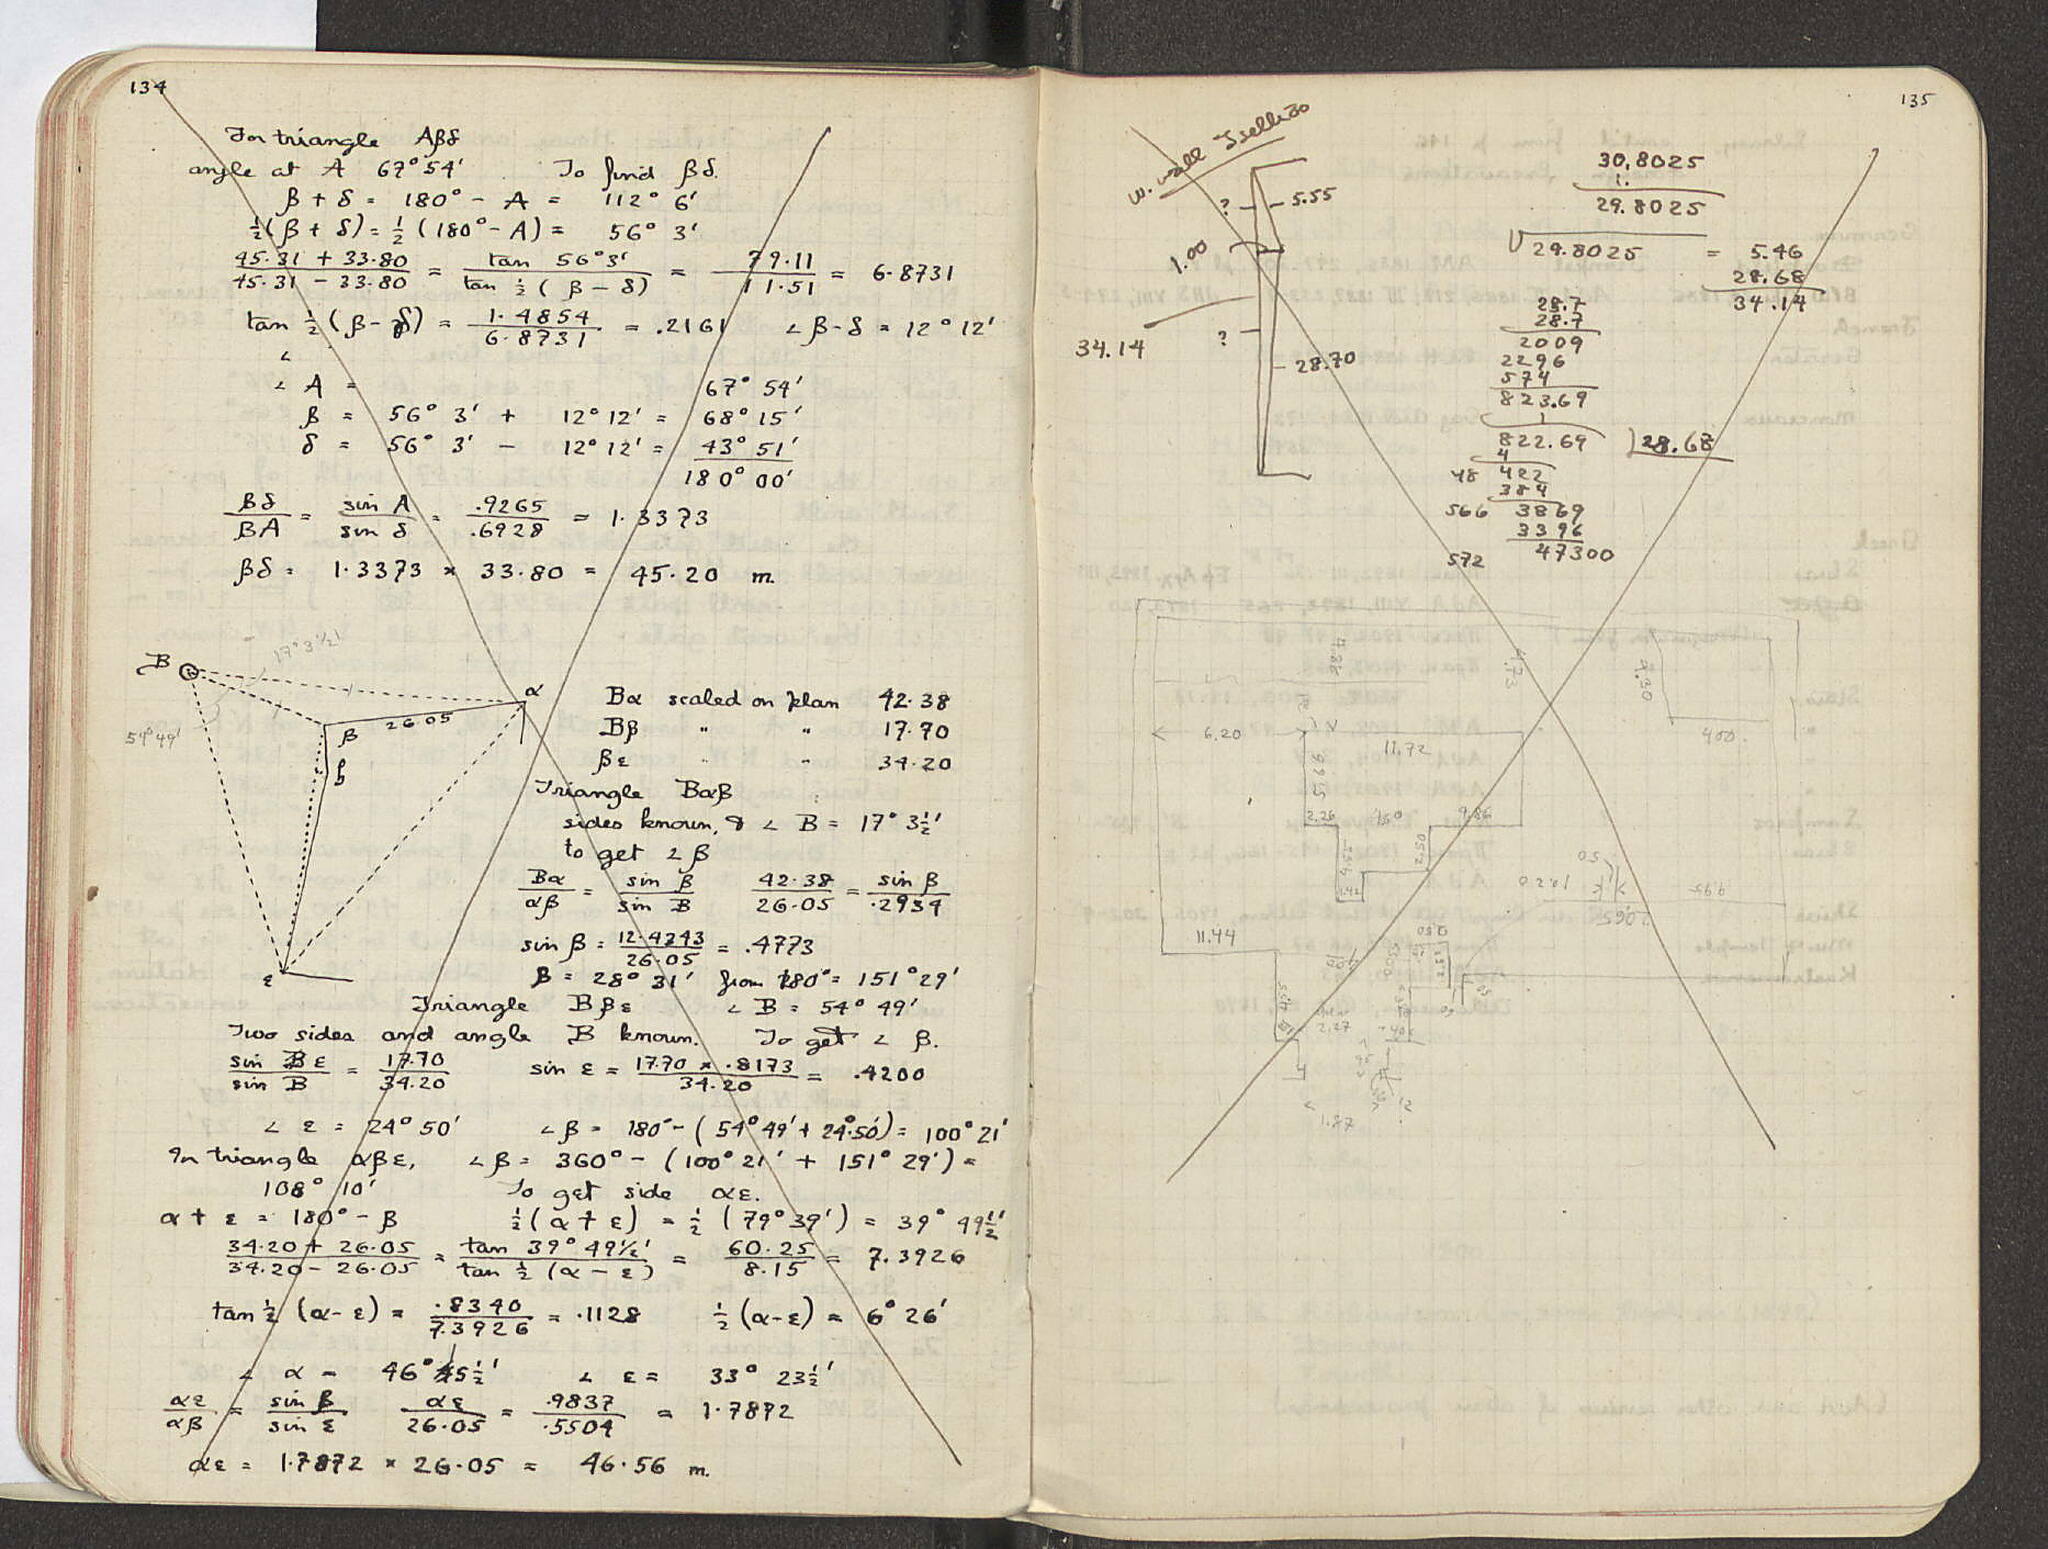 134
For triangle Aβδ
angle at A 67° 54' To find βδ.
β + δ = 180° - A = 112° 6'
½(β + δ) = ½ (180° - A) = 56° 3'
45.31 + 33.80 / 45.31 - 33.80 = tan 56° 3' / tan ½ (β - δ) = 79.11 / 11.51 = 6.8731
tan ½ (β - δ) = 1.4854 / 6.8731 = .2161 ∠ β-δ = 12° 12'
∠
∠ A = 67° 54'
β = 56° 3' + 12° 12' = 68° 15'
δ = 56° 3' - 12° 12' = 43° 51'
180° 00'
βδ / βA = sin A / sin δ = .9265 / .6928 = 1.3373
βδ = 1.3373 × 33.80 = 45.20 m.
B
17° 3½'
α
26.05
β
54° 49'
b
ε
Bα scaled on plan 42.38
Bβ " " 17.70
βε " " 34.20
Triangle Bαβ
sides known, & ∠ B = 17° 3½'
to get ∠ β
Bα / αβ = sin β / sin B 42.38 / 26.05 = sin β / .2934
sin β = 12.4243 / 26.05 = .4773
β = 28° 31' from 180° = 151° 29'
Triangle Bβε ∠ B = 54° 49'
Two sides and angle B known. To get ∠ β.
sin Bε / sin B = 17.70 / 34.20 sin ε = 17.70 × .8173 / 34.20 = .4200
∠ ε = 24° 50' ∠ β = 180° - (54° 49' + 24° 50') = 100° 21'
In triangle αβε, ∠ β = 360° - (100° 21' + 151° 29') =
108° 10' To get side αε.
α + ε = 180° - β ½ (α + ε) = ½ (79° 39') = 39° 49½'
34.20 + 26.05 / 34.20 - 26.05 = tan 39° 49½' / tan ½ (α - ε) = 60.25 / 8.15 = 7.3926
tan ½ (α - ε) = .8340 / 7.3926 = .1128 ½ (α - ε) = 6° 26'
∠ α = 46° 15½' ∠ ε = 33° 23½'
αε / αβ = sin β / sin ε αε / 26.05 = .9837 / .5504 = 1.7872
αε = 1.7872 × 26.05 = 46.56 m.
135
W. wall
? 5.55
1.00
34.14
? 28.70
30.8025
1.
29.8025
√29.8025 = 5.46
28.68
34.14
28.7
28.7
2009
2296
574
823.69
1
822.69 28.68
4
48 422
384
566 3869
3396
572 47300
4.73
9.30
6.20
11.72
400.
5.69
2.26
9.86
2.50
10.20
50
11.44
2.27
1.87